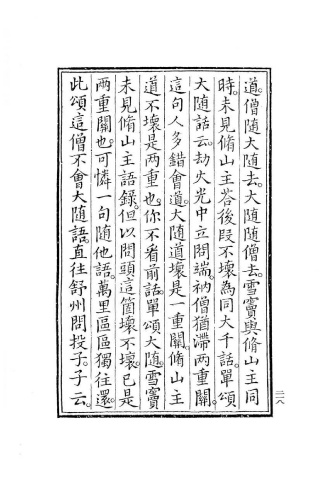 道。僧随大随去。大随随僧去。雪竇與脩山主同
時。未見脩山主荅後叚不壞為同大千話。單頌
大随話云。劫火光中立問端。衲僧猶滯兩重關。
這句人多錯會道。大随道壞是一重關。脩山主
道不壞是兩重也。你不看前話。單頌大随。雪竇
未見脩山主語録。但以問頭這箇壞不壞。已是
兩重關也。可憐一句随他語。萬里區區獨往還。
此頌這僧不會大随語。直往舒州問投子。子云。
二一八